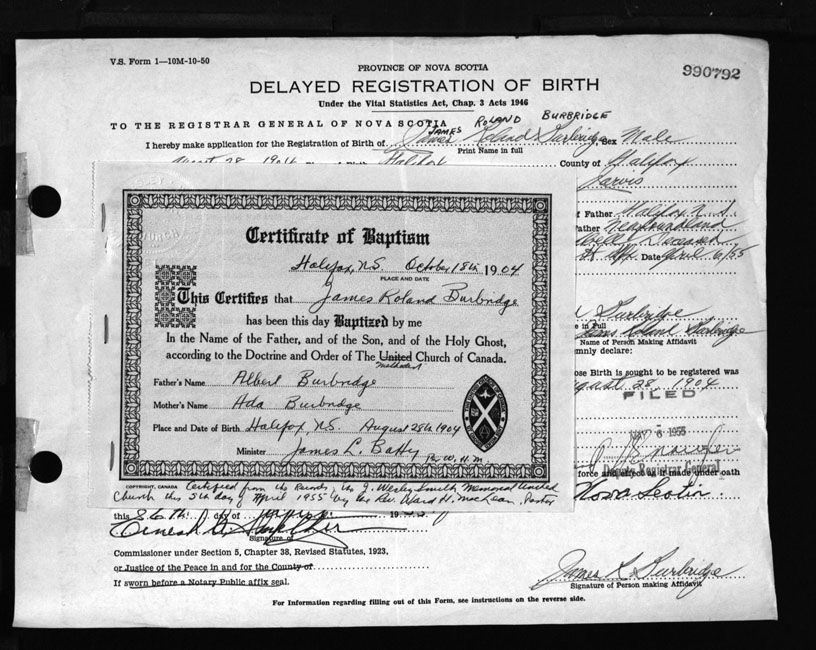 V.S. Form 1—10M-10-50
PROVINCE OF NOVA SCOTIA
990792
DELAYED REGISTRATION OF BIRTH
Under the Vital Statistics Act, Chap. 3 Acts 1946
JAMES ROLAND BURBRIDGE
TO THE REGISTRAR GENERAL OF NOVA SCOTIA
I hereby make application for the Registration of Birth of James Roland Burbridge Sex Male
Print Name in full
August 28 1904 Halifax County of Halifax
Jarvis
of Father Halifax N.S.
Father Newfoundland
Date April 6/55
Certificate of Baptism
Halifax, N.S. October 18th 1904
PLACE AND DATE
This Certifies that James Roland Burbridge
has been this day Baptized by me
In the Name of the Father, and of the Son, and of the Holy Ghost,
according to the Doctrine and Order of The United Church of Canada.
Methodist
Father's Name Albert Burbridge
Mother's Name Ada Burbridge
Place and Date of Birth Halifax, N.S. August 28th 1904
Minister James L. Batty Per W.H.M.
COPYRIGHT, CANADA
Certified from the Records, the J. Wesley Smith Memorial United
Church this 5th day of April 1955 by the Rev. Ward H. MacLean, Pastor
Burbridge
e in Full
James Roland Burbridge
Name of Person Making Affidavit
emnly declare:
ose Birth is sought to be registered was
August 28, 1904
FILED
1955
Deputy Registrar General
force and effect as if made under oath
Nova Scotia
this 6th day of 19
Signature of
Commissioner under Section 5, Chapter 38, Revised Statutes, 1923,
or Justice of the Peace in and for the County of
If sworn before a Notary Public affix seal.
James R. Burbridge
Signature of Person making Affidavit
For Information regarding filling out of this Form, see instructions on the reverse side.